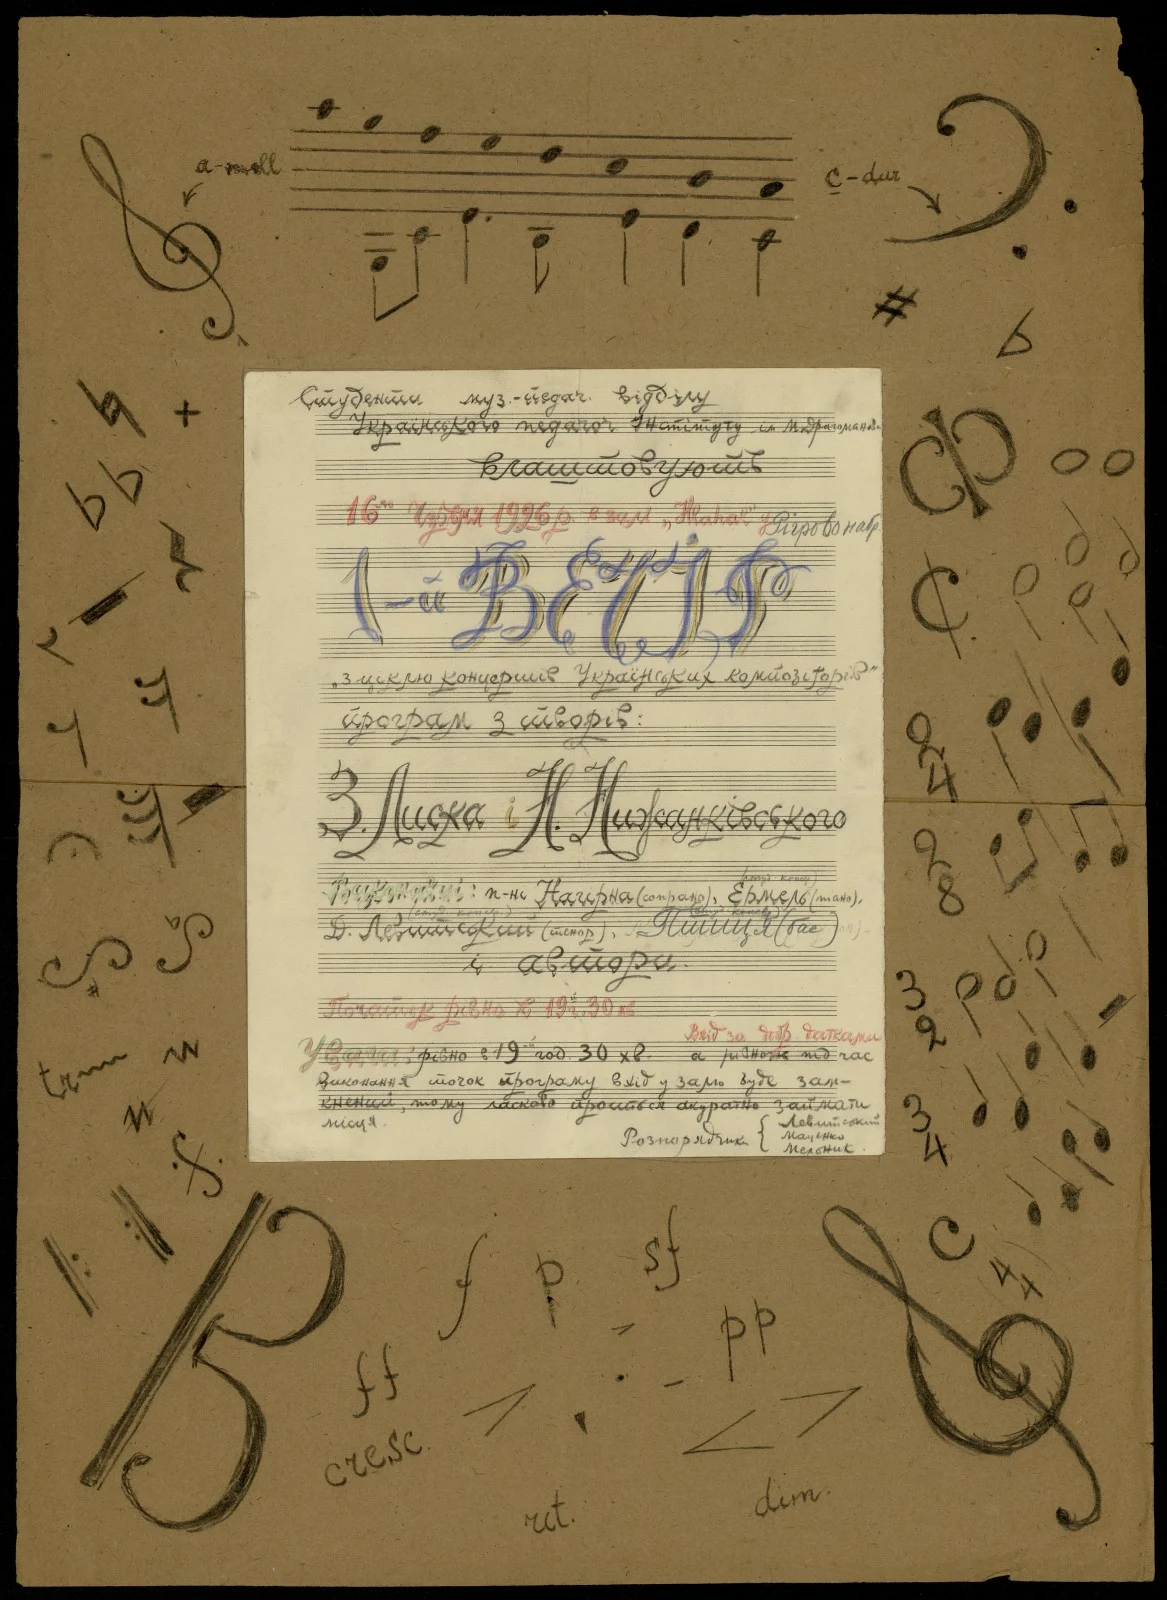 a-moll
c-dur
Студенти муз.-педаг. відділу
Українського педагог Інституту ім М.Драгоманова
влаштовують
16го Червня 1926 р. в залі „Hlahol" у Рігрово набр.
1-й ВЕЧІР
„з циклю концертів Українських композіторів"
програм з творів:
З. Лиска і Н. Нижанківського
Виконавці: п-ні Нагірна (сопрано), Ермель (піано),
Д. Левитський (тенор), Птиця (бас)
і автори.
Початок рівно в 19г. 30 хв
Вхід за добр. датками
Увага: рівно в 19 год. 30 хв. а рівнож під час
виконання точок програму вхід у залю буде зам-
кнений, тому ласкаво проситься акуратно займати
місця.
Розпорядчики { Левитський
Маценко
Мельник.
2
4
2
8
3
2
3
4
C
4
4
tr
f p sf
pp
ff
cresc.
rit.
dim.